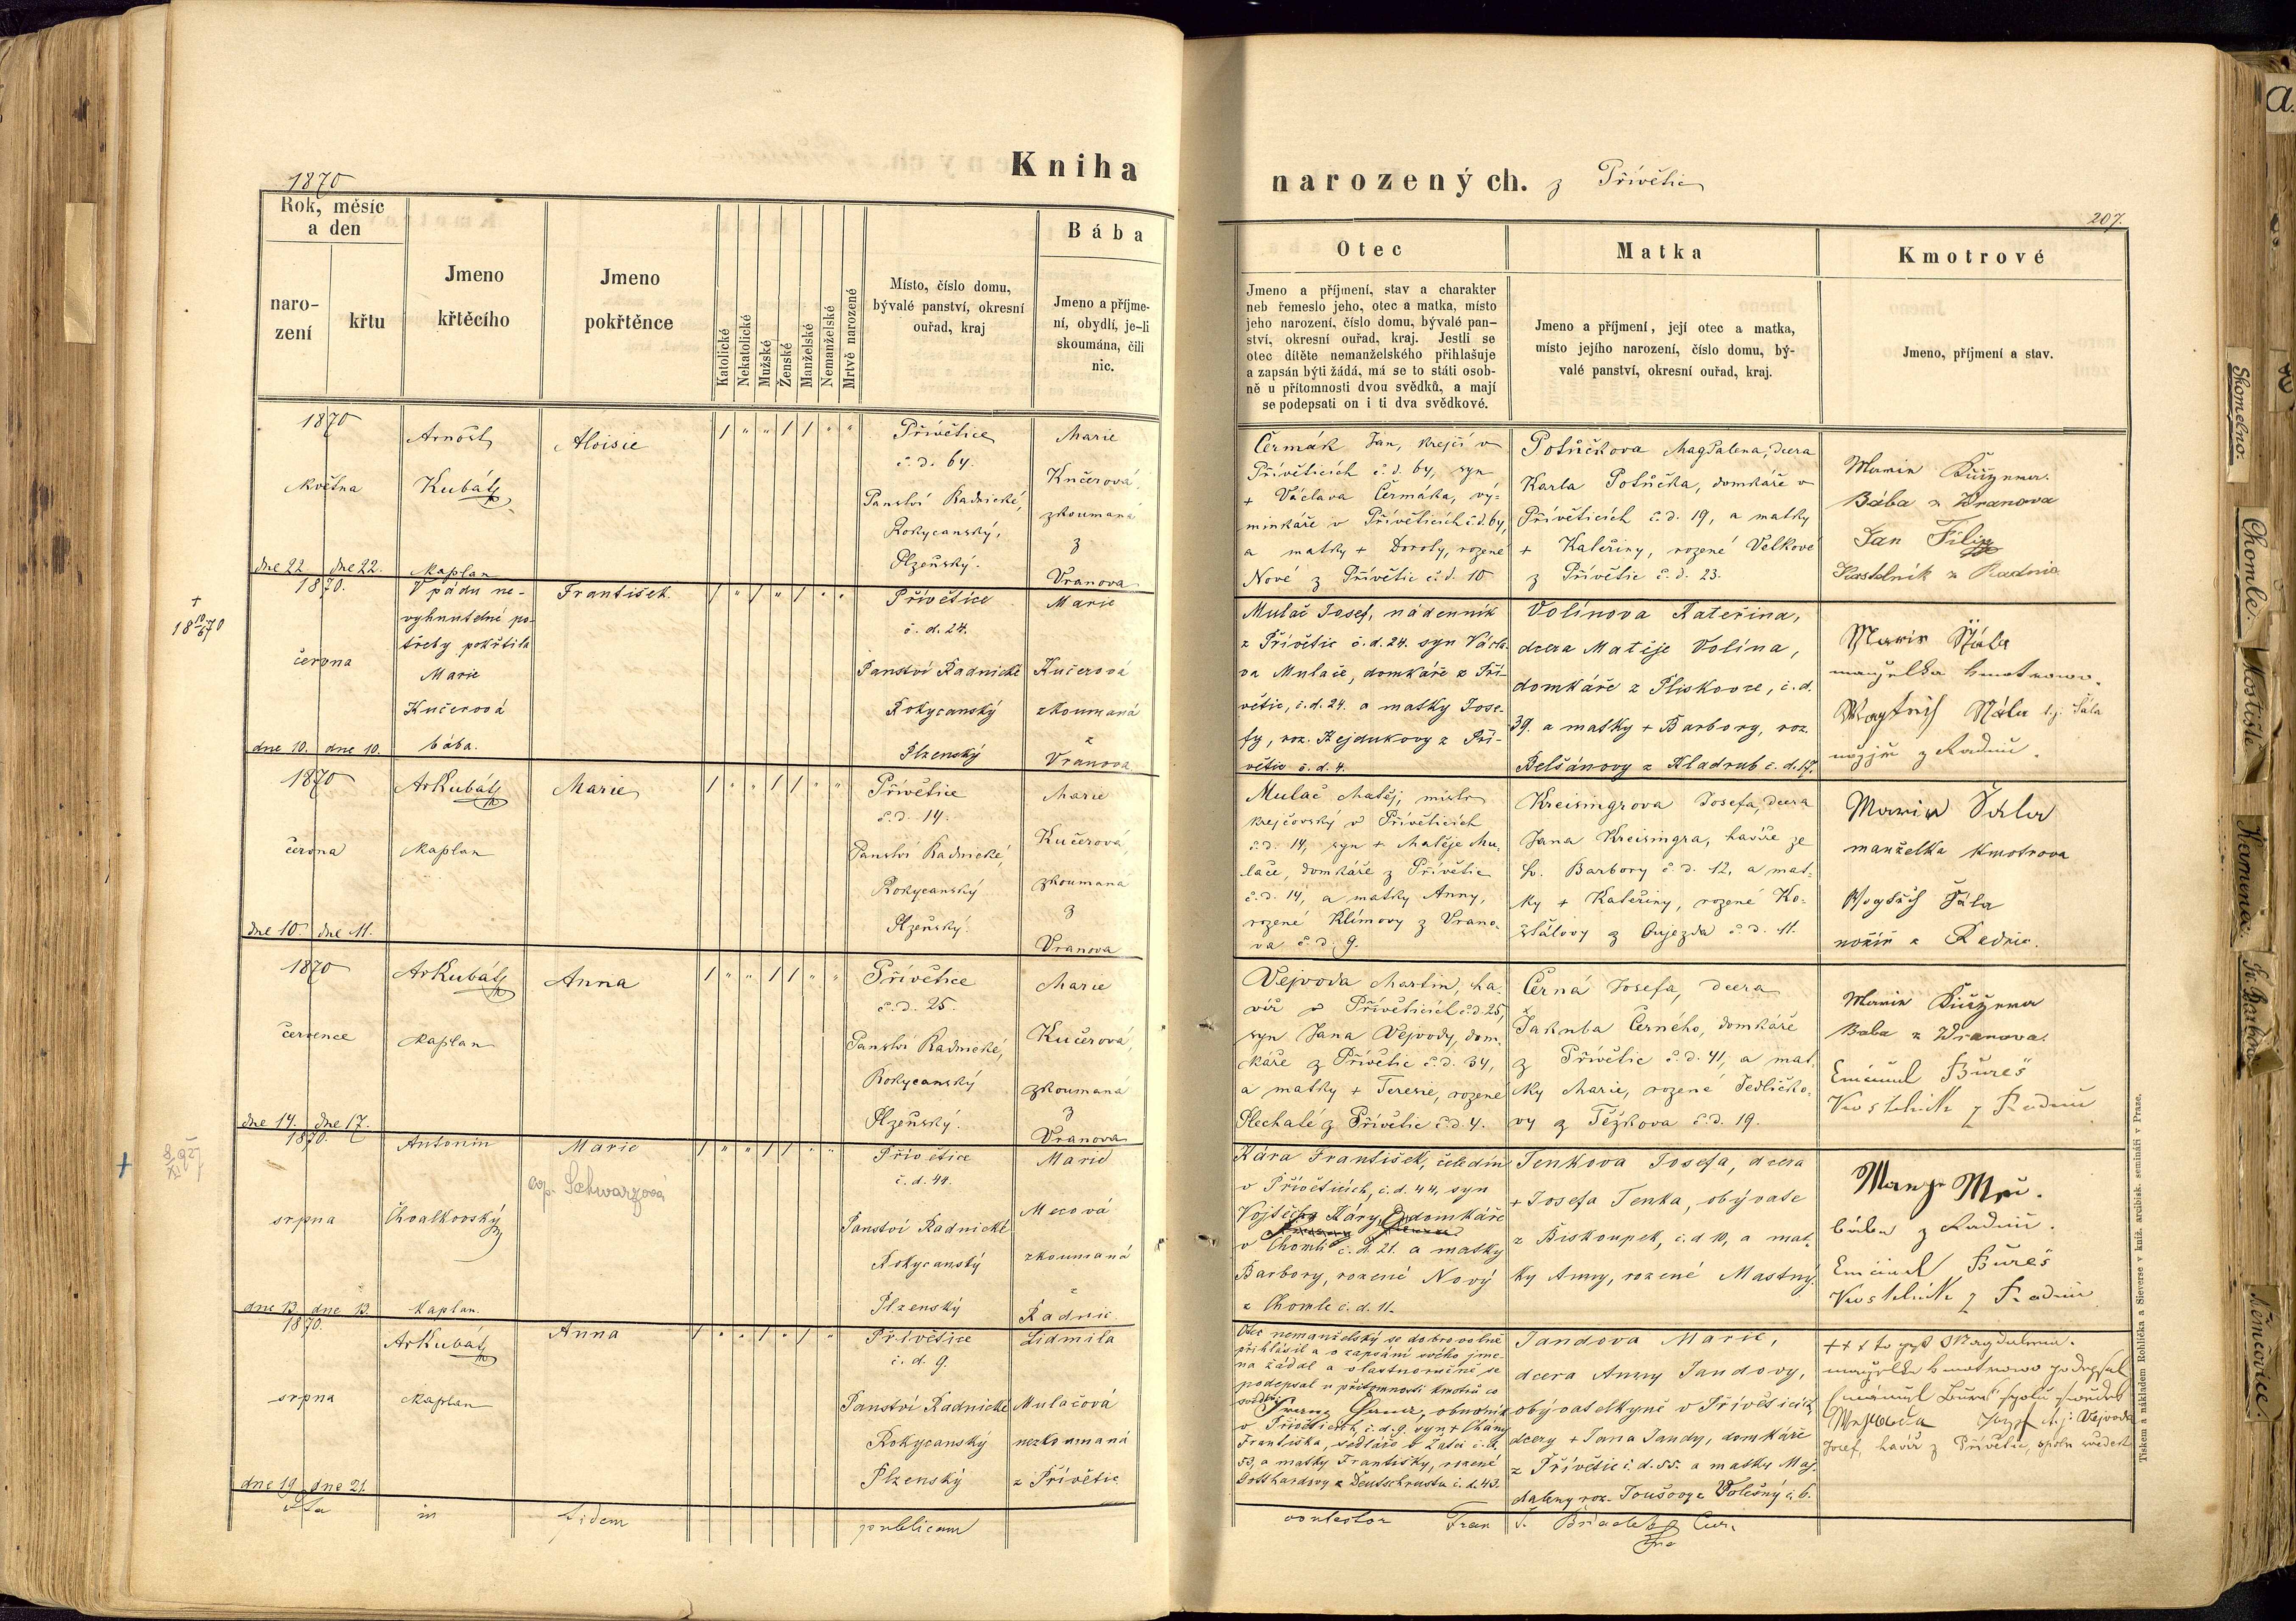 1870
Kniha
narozených. z Přívětic
207.
Rok, měsíc
a den
naro-
zení
křtu
Jmeno
křtěcího
Jmeno
pokřtěnce
Katolické
Nekatolické
Mužské
Ženské
Manželské
Nemanželské
Mrtvě narozené
Místo, číslo domu,
bývalé panství, okresní
ouřad, kraj
Bába
Jmeno a příjme-
ní, obydlí, je-li
skoumána, čili
nic.
Otec
Jmeno a příjmení, stav a charakter
neb řemeslo jeho, otec a matka, místo
jeho narození, číslo domu, bývalé pan-
ství, okresní ouřad, kraj. Jestli se
otec dítěte nemanželského přihlašuje
a zapsán býti žádá, má se to státi osob-
ně u přítomnosti dvou svědků, a mají
se podepsati on i ti dva svědkové.
Matka
Jmeno a příjmení, její otec a matka,
místo jejího narození, číslo domu, bý-
valé panství, okresní ouřad, kraj.
Kmotrové
Jmeno, příjmení a stav.
1870
května
dne 22. dne 22.
Arnošt
Kubát
Kaplan
Aloisie
/ " " / / " "
Přívětice
č. d. 64.
Panství Radnické,
Rokycanský,
Plzeňský.
Marie
Kučerová,
zkoumaná
z
Vranova
Čermák Jan, krejčí v
Přívěticích č. d. 64, syn
+ Václava Čermáka, vý-
minkáře v Přívěticích č. d. 64,
a matky + Doroty, rozené
Nové z Přívětic č. d. 10
Potůčkova Magdalena, dcera
Karla Potůčka, domkáře v
Přívěticích č. d. 19, a matky
+ Kateřiny, rozené Velkové
z Přívětic č. d. 23.
Bába z Vranova
Jan Filip
Kostelník z Radnic
+
18 10/6 70
1870.
června
dne 10. dne 10.
V pádu ne-
vyhnutelné po-
třeby pokřtila
Marie
Kučerová
bába.
František
/ " / " / " "
Přívětice
č. d. 24.
Panství Radnické
Rokycanský
Plzenský
Marie
Kučerová
zkoumaná
z
Vranova
Mulač Josef, nádenník
z Přívětic č. d. 24. syn Václa-
va Mulače, domkáře z Pří-
větic, č. d. 24. a matky Jose-
fy, roz. Rejdukovy z Pří-
větic č. d. 4.
Volínova Kateřina,
dcera Matěje Volína,
domkáře z Pliskovce, č. d.
39. a matky + Barbory, roz.
Belšánovy z Kladrub č. d. 17.
manželka kmotrowo.
t. j. Šála
nožíř z Radnic.
1870
června
dne 10. dne 11.
ArKubát
Kaplan
Marie
/ " " / / " "
Přívětice
č. d. 14.
Panství Radnické,
Rokycanský
Plzeňský.
Marie
Kučerová,
zkoumaná
z
Vranova
Mulač Matěj, mistr
krejčovský v Přívěticích
č. d. 14, syn + Matěje Mu-
lače, domkáře z Přívětic
č. d. 14, a matky Anny,
rozené Klímovy z Vrano-
va č. d. 9.
Kreisingrova Josefa, dcera
Jana Kreisingra, havíře ze
Sv. Barbory č. d. 12, a mat-
ky + Kateřiny, rozené Ko-
žtálovy z Oujezda č. d. 11.
Maria Šála
manželka kmotrova
Šála
nožíř z Radnic.
1870
července
dne 14. dne 17.
ArKubát
Kaplan
Anna
/ " " / / " "
Přívětice
č. d. 25.
Panství Radnické,
Rokycanský
Plzeňský.
Marie
Kučerová,
zkoumaná
z
Vranova
Vejvoda Martin, ha-
víř v Přívěticích č. d. 25,
syn Jana Vejvody, dom-
káře z Přívětic č. d. 34,
a matky + Terezie, rozené
Plechaté z Přívětic č. d. 4.
Černá Josefa, dcera
Jakuba Černého, domkáře
z Přívětic č. d. 41, a mat-
ky Marie, rozené Jedličko-
vy z Těžkova č. d. 19.
Baba z Wranova.
Emanuel Bureš
Kostelník z Radnic
+
1870.
srpna
dne 13. dne 13.
Antonín
Chvalkovský
Kaplan.
Marie
cop. Schwarzová
/ " " / / " "
Přívětice
č. d. 44.
Panství Radnické
Rokycanský
Plzenský
Marie
Mecová
zkoumaná
z
Radnic
Kára František, čeledín
v Přívěticích, č. d. 44, syn
Vojtěcha Káry, domkáře
v Chomli č. d. 21. a matky
Barbory, rozené Nový
z Chomle č. d. 11.
Tenkova Josefa, dcera
+ Josefa Tenka, obývate
z Biskoupek, č. d. 10, a mat-
ky Anny, rozené Mastný.
bába z Radnic.
Emanuel Bureš
Kostelník z Radnic
1870.
srpna
dne 19. dne 21.
ArKubát
Kaplan
Anna
/ " " / " / "
Přívětice
č. d. 9.
Panství Radnické
Rokycanský
Plzenský
Lidmila
Mulačová
nezkoumaná
z Přívětic
Otec nemanželský se dobrovolně
přihlásil a o zapsání svého jme-
na žádal a vlastnoručně se
podepsal u přítomnosti kmotrů co
svědků.
v Přívěticích, č. d. 9. syn +
Františka, sedláře v Žatci č. d.
53, a matky Františky, rozené
Gotthardovy z Deutschrustu č. d. 43.
Jandova Marie,
dcera Anny Jandovy,
obývatelkyně v Přívěticích,
dcery + Jana Jandy, domkáře
z Přívětic č. d. 55. a matky Mag-
daleny roz. Toušovy z Volešný č. 6.
+ + + to jest Magdalena.
manželka kmotrowo podepsal
Emanuel Bureš spolu soudek
Wejwoda Josef t. j. Vejvoda
Josef, havíř z Přívětic, spolu svědek
Ita in fidem publicam
contestor Fran
Cur.
Tiskem a nákladem Rohlíčka a Sieverse v kníž. arcibisk. semináři v Praze.
Skomelno.
Chomle.
Mostiště
Kamenec.
Sv. Barbora
Němčovice.